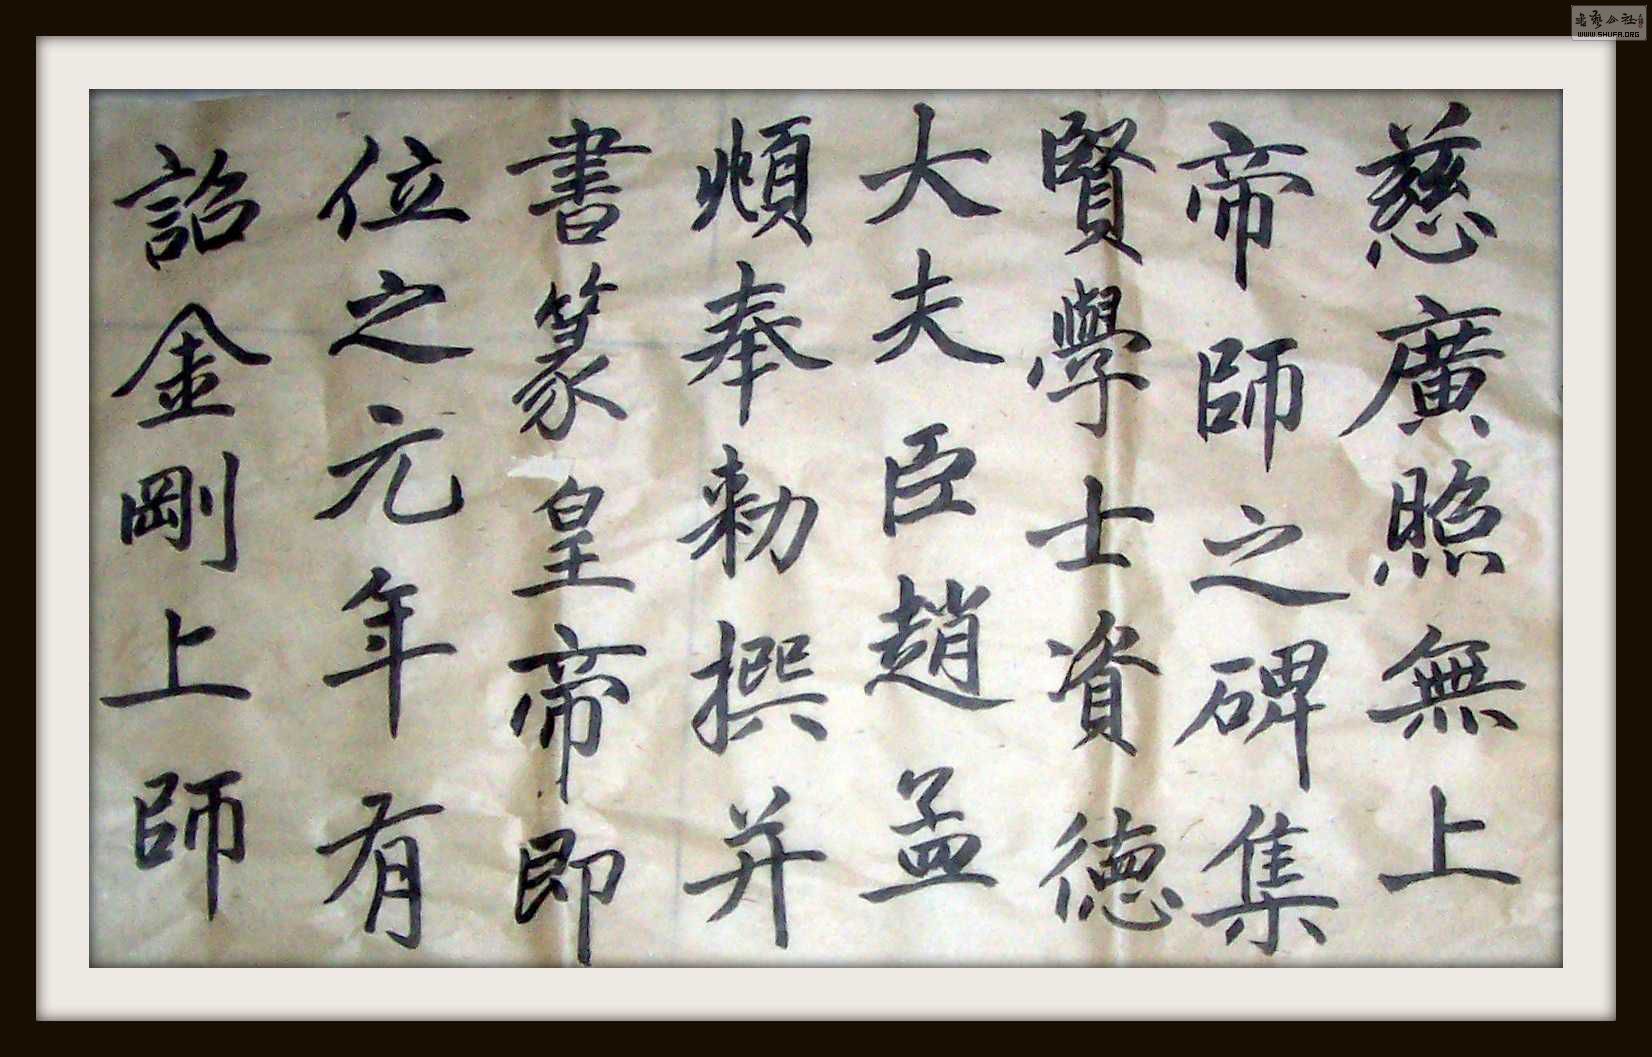 慈廣照無上
帝師之碑集
賢學士資德
大夫臣趙孟
頫奉勅撰并
書篆皇帝即
位之元年有
詔金剛上師
書藝公社
WWW.SHUFA.ORG